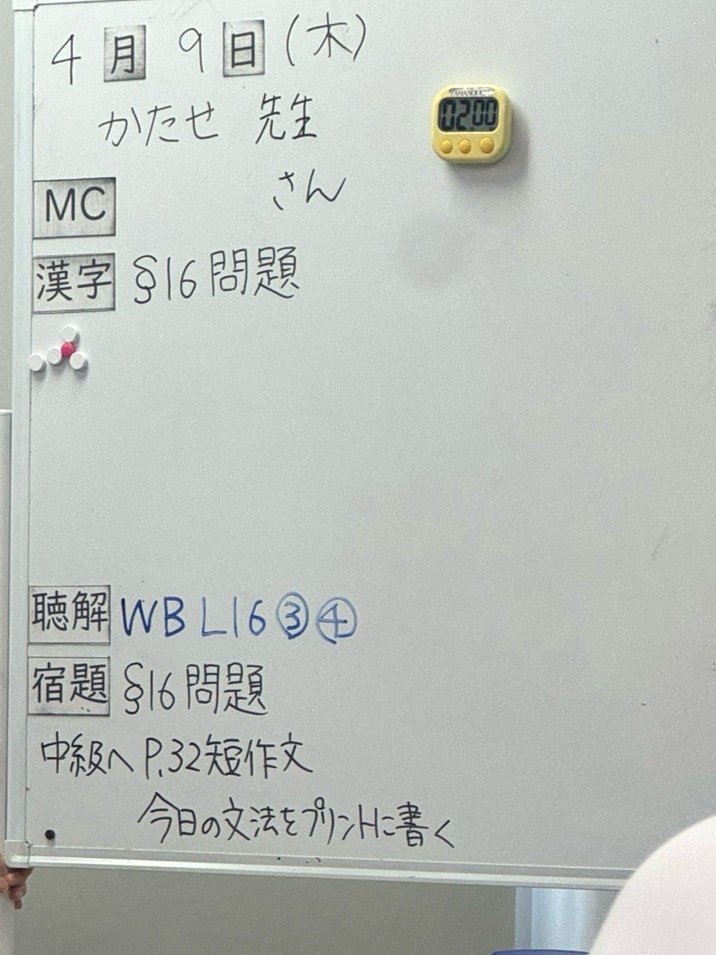 4月9日(木)
かたせ 先生
02:00
MC さん
漢字 §16問題
聴解 WB L16 ③④
宿題 §16問題
中級へ P.32短作文
今日の文法をプリントに書く